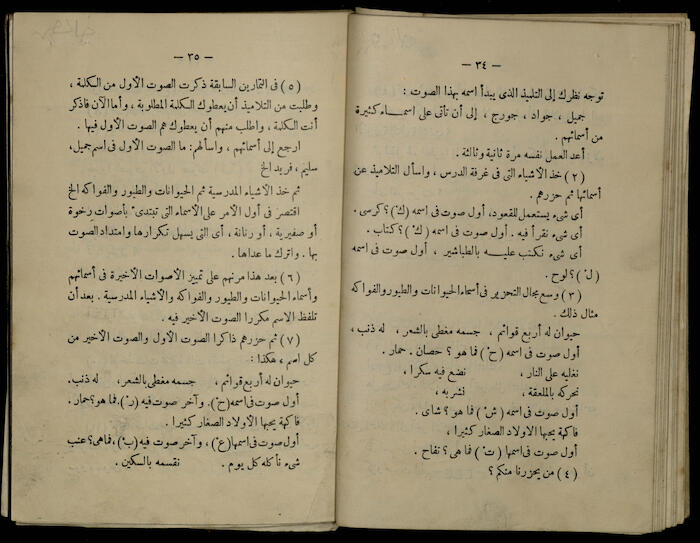 — ٣٤ —
توجه نظرك إلى التلميذ الذى يبدأ اسمه بهذا الصوت :
جميل ، جواد ، جورج ، إلى أن تأتى على اسمـاء كثيرة
من أسمائهم .
أعد العمل نفسه مرة ثانية وثالثة .
(٢) خذ الأشياء التى فى غرفة الدرس ، واسأل التلاميذ عن
أسمائها ثم حزرهم .
أى شىء يستعمل للقعود، أول صوت فى اسمه (كْ)؟ كرسى .
أى شىء نقرأ فيه . أول صوت فى اسمه (كْ)؟ كتاب .
أى شىء نكتب عليـه بالطباشير ، أول صوت فى اسمه
(لْ)؟ لوح .
(٣) وسع مجال التحزير فى أسماء الحيوانات والطيور والفواكه
مثال ذلك .
حيوان له أربع قوائم ، جسمه مغطى بالشعر ، له ذنب ،
أول صوت فى اسمه (حْ) فما هو ؟ حصان . حمار .
نغليه على النار ، نضع فيه سكرا ،
نحركه بالملعقة ، نشربه ،
أول صوت فى اسمه (شْ) فما هو ؟ شاى .
فاكهة يحبها الأولاد الصغار كثيرا ،
أول صوت فى اسمها (تْ) فما هى ؟ تفاح .
(٤) من يحزرنا منكم ؟
— ٣٥ —
(٥) فى التمارين السابقة ذكرت الصوت الأول من الكلمة ،
وطلبت من التلاميذ أن يعطوك الكلمة المطلوبة ، وأما الآن فاذكر
أنت الكلمة ، واطلب منهم أن يعطوك هم الصوت الأول فيها .
ارجع إلى أسمائهم ، واسألهم : ما الصوت الأول فى اسم جميل ،
سليم ، فريد الخ
ثم خذ الأشياء المدرسية ثم الحيوانات والطيور والفواكه الخ
اقتصر فى أول الأمر على الأسماء التى تبتدئ بأصوات رخوة
أو صفيرية ، أو رنانة ، أى التى يسهل تكرارها وامتداد الصوت
بها . واترك ما عداها .
(٦) بعد هذا مرنهم على تمييز الأصوات الأخيرة فى أسمائهم
وأسماء الحيوانات والطيور والفواكه والأشياء المدرسية . بعد أن
تلفظ الاسم مكررا الصوت الأخير فيه .
(٧) ثم حزرهم ذاكرا الصوت الأول والصوت الأخير من
كل اسم ، هكذا :
حيوان له أربع قوائم ، جسمه مغطى بالشعر ، له ذنب .
أول صوت فى اسمه (حْ)، وآخر صوت فيه (رْ). فما هو؟ حمار .
فاكهة يحبها الأولاد الصغار كثيرا .
أول صوت فى اسمها (عْ) ، وآخر صوت فيه (بْ)، فما هى؟ عنب
شىء نأكله كل يوم . نقسمه بالسكين .